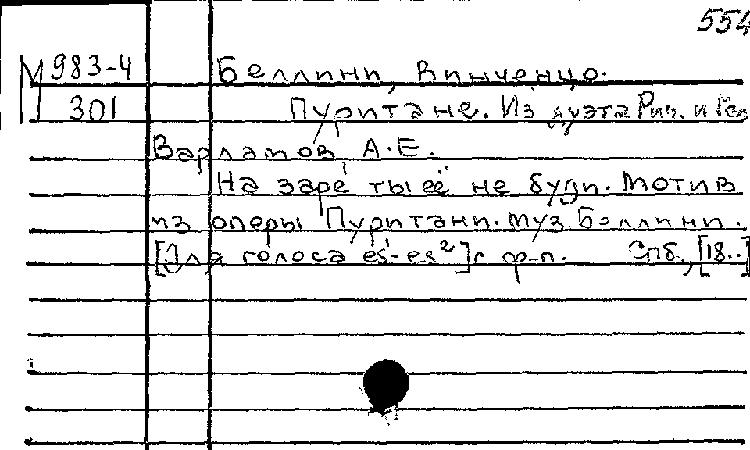 554
М 983-4
301
Беллини, Винченцо.
Пуритане. Из дуэта Рич. и
Варламов, А.Е.
На заре ты её не буди. Мотив
из оперы Пуритани. муз Беллини.
[Для голоса es¹-es²] с ф-п. Спб., [18..]